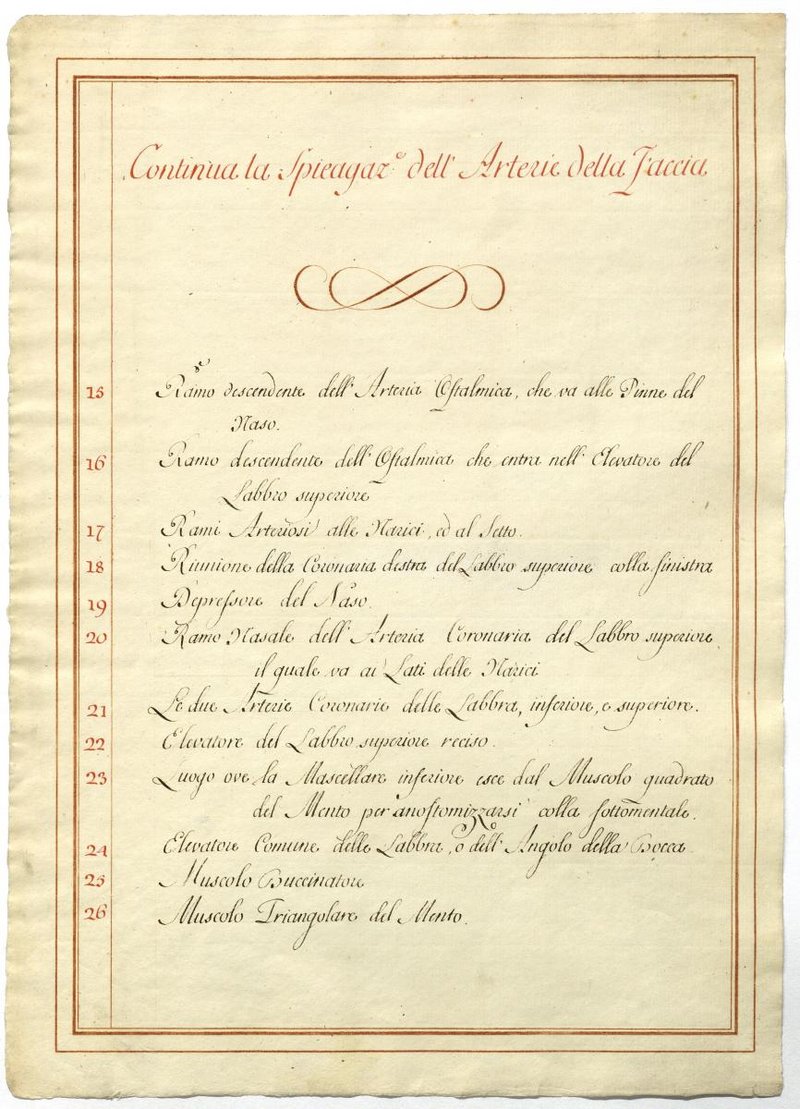 Continua la Spieagaz.e dell' Arterie della Faccia
15 Ramo descendente dell' Arteria Oftalmica, che va alle Pinne del
Naso.
16 Ramo descendente dell' Oftalmica che entra nell' Elevatore del
Labbro superiore
17 Rami Arteriosi alle Narici, ed al Setto.
18 Riunione della Coronaria destra del Labbro superiore colla sinistra
19 Depressore del Naso.
20 Ramo Nasale dell' Arteria Coronaria del Labbro superiore
il quale va ai Lati delle Narici
21 Le due Arterie Coronarie delle Labbra, inferiore, e superiore.
22 Elevatore del Labbro superiore reciso.
23 Luogo ove la Mascellare inferiore esce dal Muscolo quadrato
del Mento per anostomizzarsi colla sottomentale.
24 Elevatore Comune delle Labbra, o dell' Angolo della Bocca
25 Muscolo Buccinatore
26 Muscolo Triangolare del Mento.